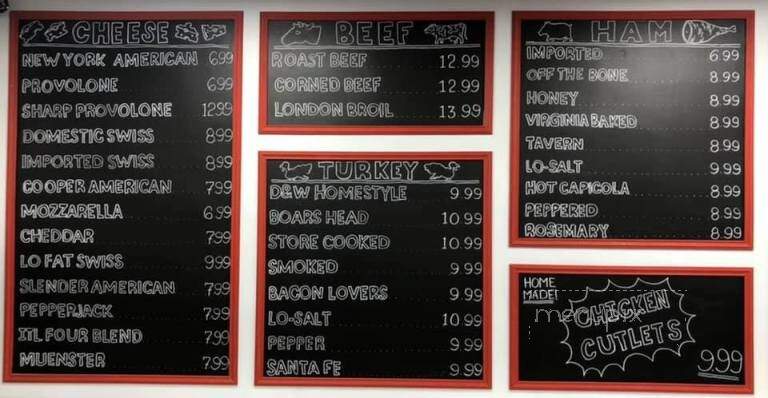 CHEESE
NEW YORK AMERICAN 6.99
PROVOLONE 6.99
SHARP PROVOLONE 12.99
DOMESTIC SWISS 8.99
IMPORTED SWISS 8.99
COOPER AMERICAN 7.99
MOZZARELLA 6.99
CHEDDAR 7.99
LO FAT SWISS 9.99
SLENDER AMERICAN 7.99
PEPPERJACK 7.99
ITL FOUR BLEND 7.99
MUENSTER 7.99
BEEF
ROAST BEEF 12.99
CORNED BEEF 12.99
LONDON BROIL 13.99
TURKEY
D&W HOMESTYLE 9.99
BOARS HEAD 10.99
STORE COOKED 10.99
SMOKED 9.99
BACON LOVERS 9.99
LO-SALT 10.99
PEPPER 9.99
SANTA FE 9.99
HAM
IMPORTED 6.99
OFF THE BONE 8.99
HONEY 8.99
VIRGINIA BAKED 8.99
TAVERN 8.99
LO-SALT 9.99
HOT CAPICOLA 8.99
PEPPERED 8.99
ROSEMARY 8.99
HOME
MADE!
CHICKEN
CUTLETS
9.99